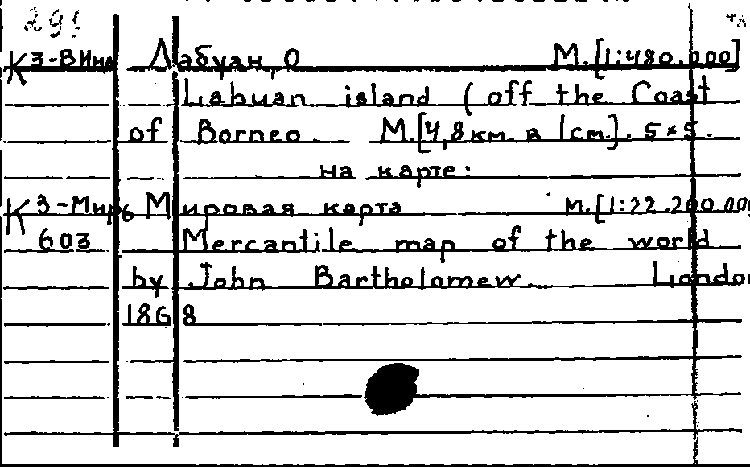 291
К З-ВИнд Лабуан, О М.[1:480.000]
Labuan island (off the Coast
of Borneo. М.[4,8 км. в 1 см.]. 5×5.
на карте:
К З-Миръ Мировая карта М.[1:22.200.000
603 Mercantile map of the world
by John Bartholomew. London
1868